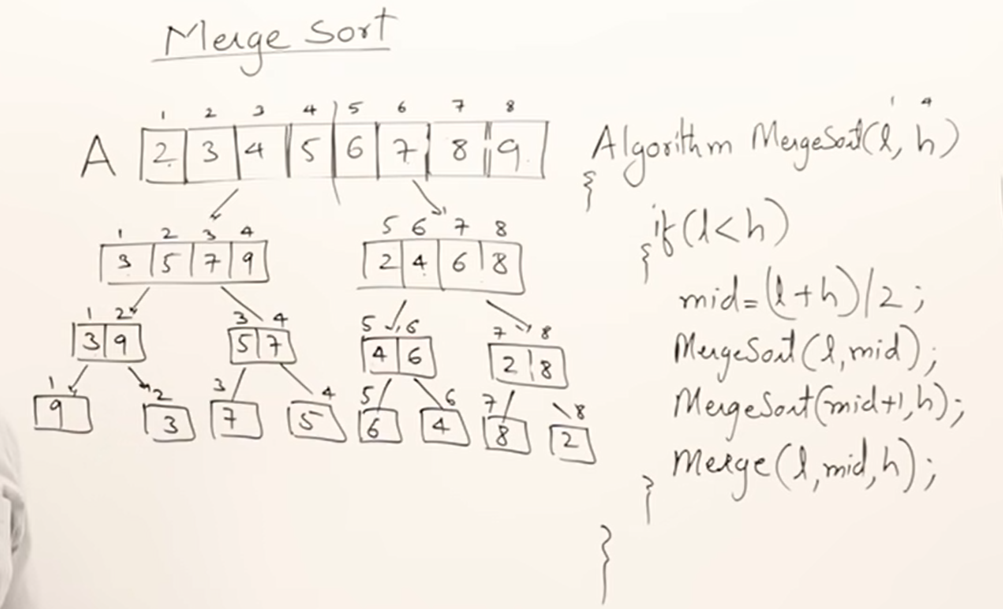 Merge Sort
1 2 3 4 5 6 7 8
A 2 3 4 5 6 7 8 9
1 2 3 4
3 5 7 9
5 6 7 8
2 4 6 8
1 2
3 9
3 4
5 7
5 6
4 6
7 8
2 8
1
9
2
3
3
7
4
5
5
6
6
4
7
8
8
2
Algorithm MergeSort(l, h)
{
if(l<h)
{
mid=(l+h)/2;
MergeSort(l,mid);
MergeSort(mid+1,h);
Merge(l,mid,h);
}
}